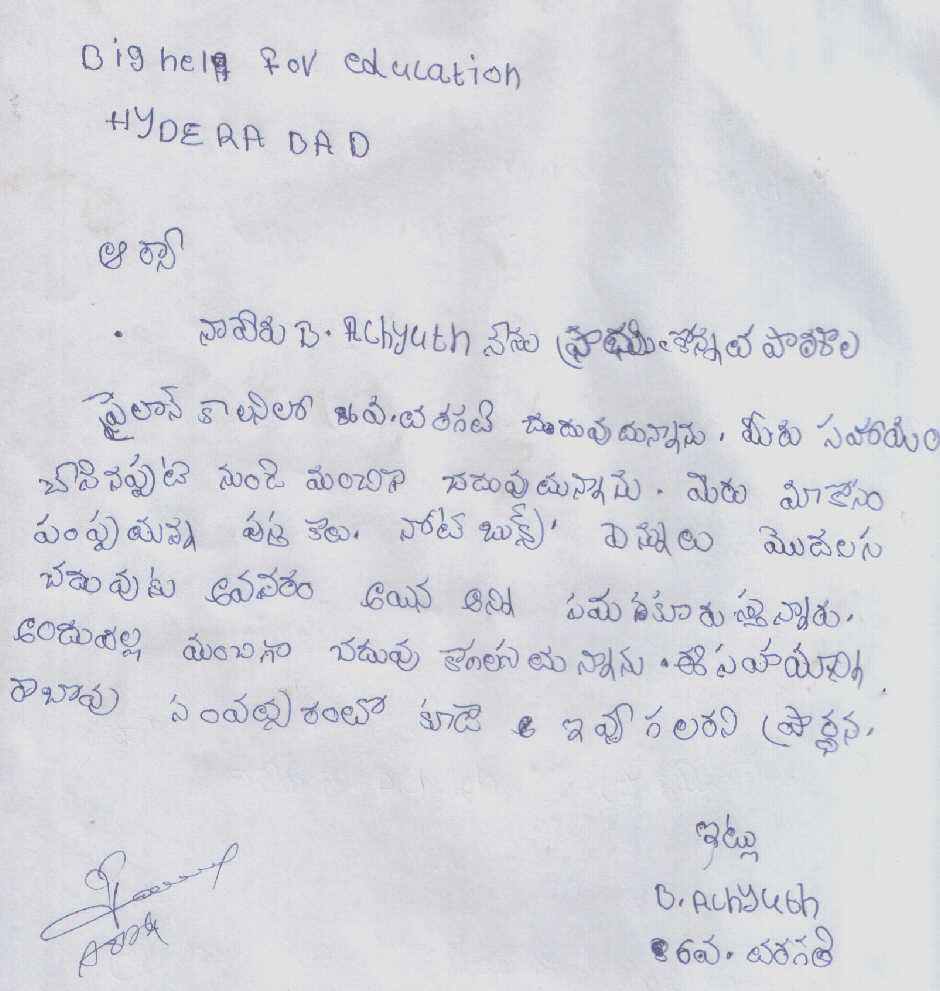 Big help for education
HYDERABAD
ఆర్యా
. నాపేరు B. Achyuth నేను ప్రాథమికోన్నత పాఠశాల
పైలాన్ కాలనిలో 6వ.తరగతి చదువుదున్నాను. మీరు సహాయం
చేసినప్పుటి నుండి మంచిగా చదువుతున్నాను. మీరు మాకోసం
పంపుతున్న పుస్తకాలు. నోట్ బుక్స్, పెన్నులు మొదలగు
చదువుకు అవసరం అయిన అన్ని సమకూరుస్తున్నారు.
అందువల్ల మంచిగా చదువు కోగలుగుతున్నాను. ఈ సహాయాన్ని
రాబోవు సంవత్సరంలో కూడా ఇవ్వగలరని ప్రార్థన.
ఇట్లు
B. Achyuth
6వ. తరగతి